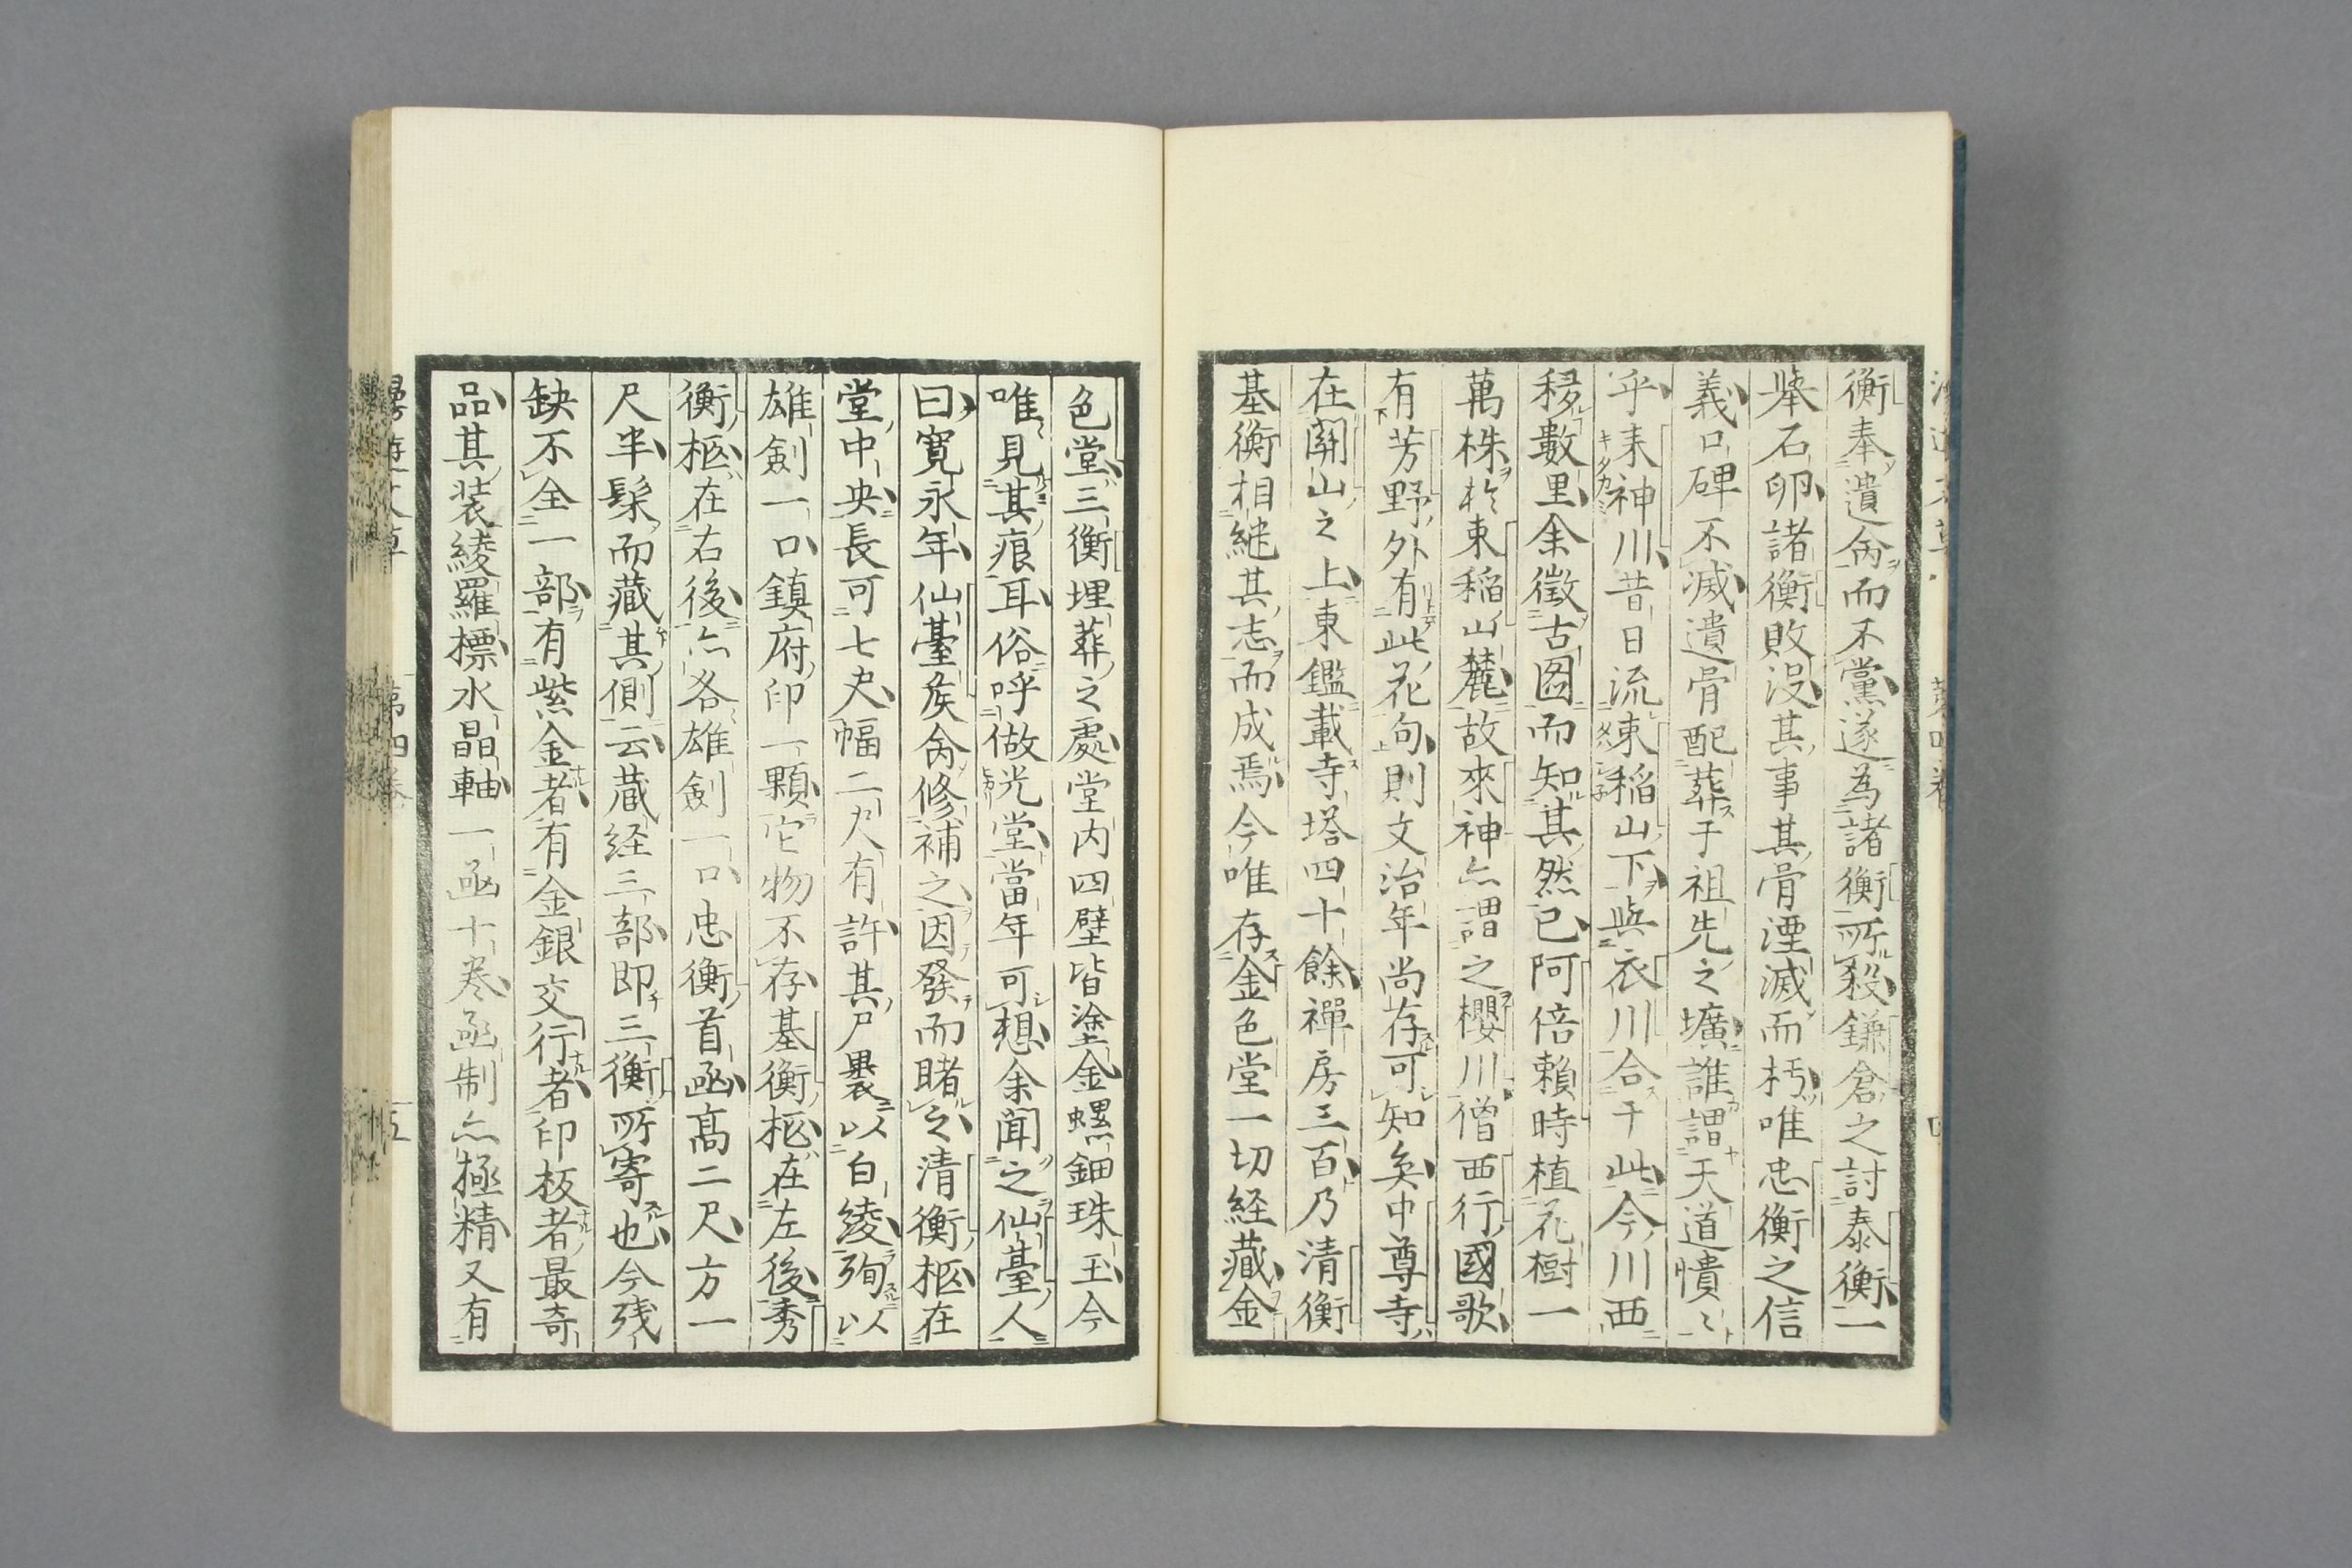 衡奉遺命而不黨遂為諸衡所殺鎌倉之討泰衡一
擧石卵諸衡敗没其事其骨湮滅而朽唯忠衡之信
義口碑不滅遺骨配葬于祖先之壙誰謂天道憒〻
乎耒神川昔日流東稲山下與衣川合于此今川西
移數里余徵古圖而知其然已阿倍頼時植花樹一
萬株於東稲山麓故來神亦謂之櫻川僧西行國歌
有芳野外有此花句則文治年尚存可知矣中尊寺
在關山之上東鑑載寺塔四十餘禪房三百乃清衡
基衡相継其志而成焉今唯存金色堂一切経藏金
色堂三衡埋葬之處堂内四壁皆塗金螺鈿珠玉今
唯見其痕耳俗呼做光堂當年可想余聞之仙臺人
曰寛永年仙臺矦命修補之因發而睹之清衡柩在
堂中央長可七尺幅二尺有許其尸裹以白綾殉以
雄劍一口鎮府印一顆它物不存基衡柩在左後秀
衡柩在右後亦各雄劍一口忠衡首凾高二尺方一
尺半髹而藏其側云蔵経三部即三衡所寄也今残
缺不全一部有紫金者有金銀交行者印板者最奇
品其装綾羅標水晶軸一凾十巻凾制亦極精又有
第四巻
五